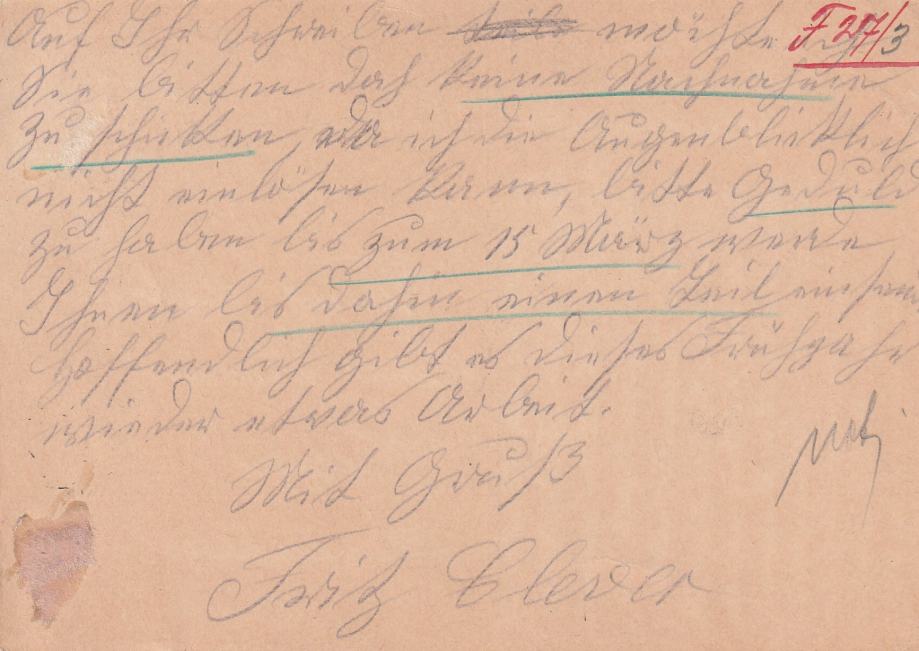 Auf Ihr Schreiben möchte ich F 27/3
Sie bitten doch keine Nachnahme
zu schicken, da ich die Augenbliklich
nicht einlösen kann, bitte Geduld
zu haben bis zum 15 März werde
Ihnen bis dahin einen Teil einsen
Hoffendlich gibt es dieses Frühjahr
wieder etwas Arbeit.
Mit Gruß
Fritz Clever